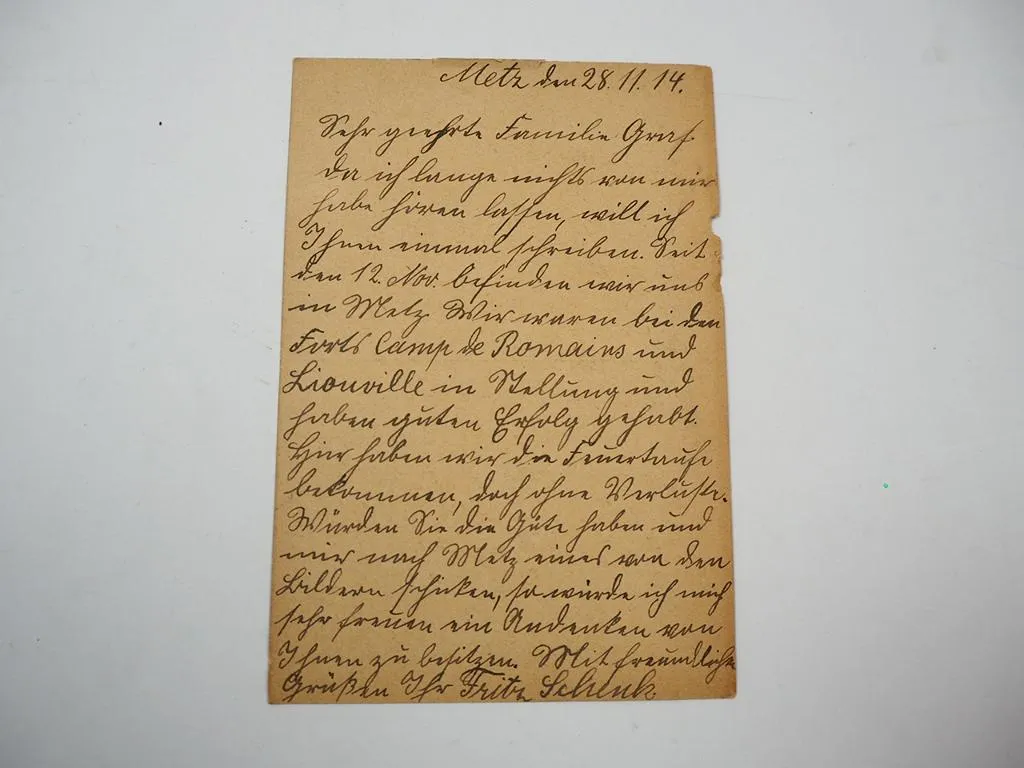 Metz den 28.11.14.
Sehr geehrte Familie Graf
da ich lange nichts von mir
habe hören lassen, will ich
Ihnen einmal schreiben. Seit
den 12. Nov. befinden wir uns
in Metz. Wir waren bei den
Forts Camp de Romains und
Lionville in Stellung und
haben guten Erfolg gehabt.
Hier haben wir die Feuertaufe
bekommen, doch ohne Verluste.
Würden Sie die Güte haben und
mir nach Metz eines von den
Bildern schicken, so würde ich mich
sehr freuen ein Andenken von
Ihnen zu besitzen. Mit freundliche
Grüßen Ihr Fritz Schenk